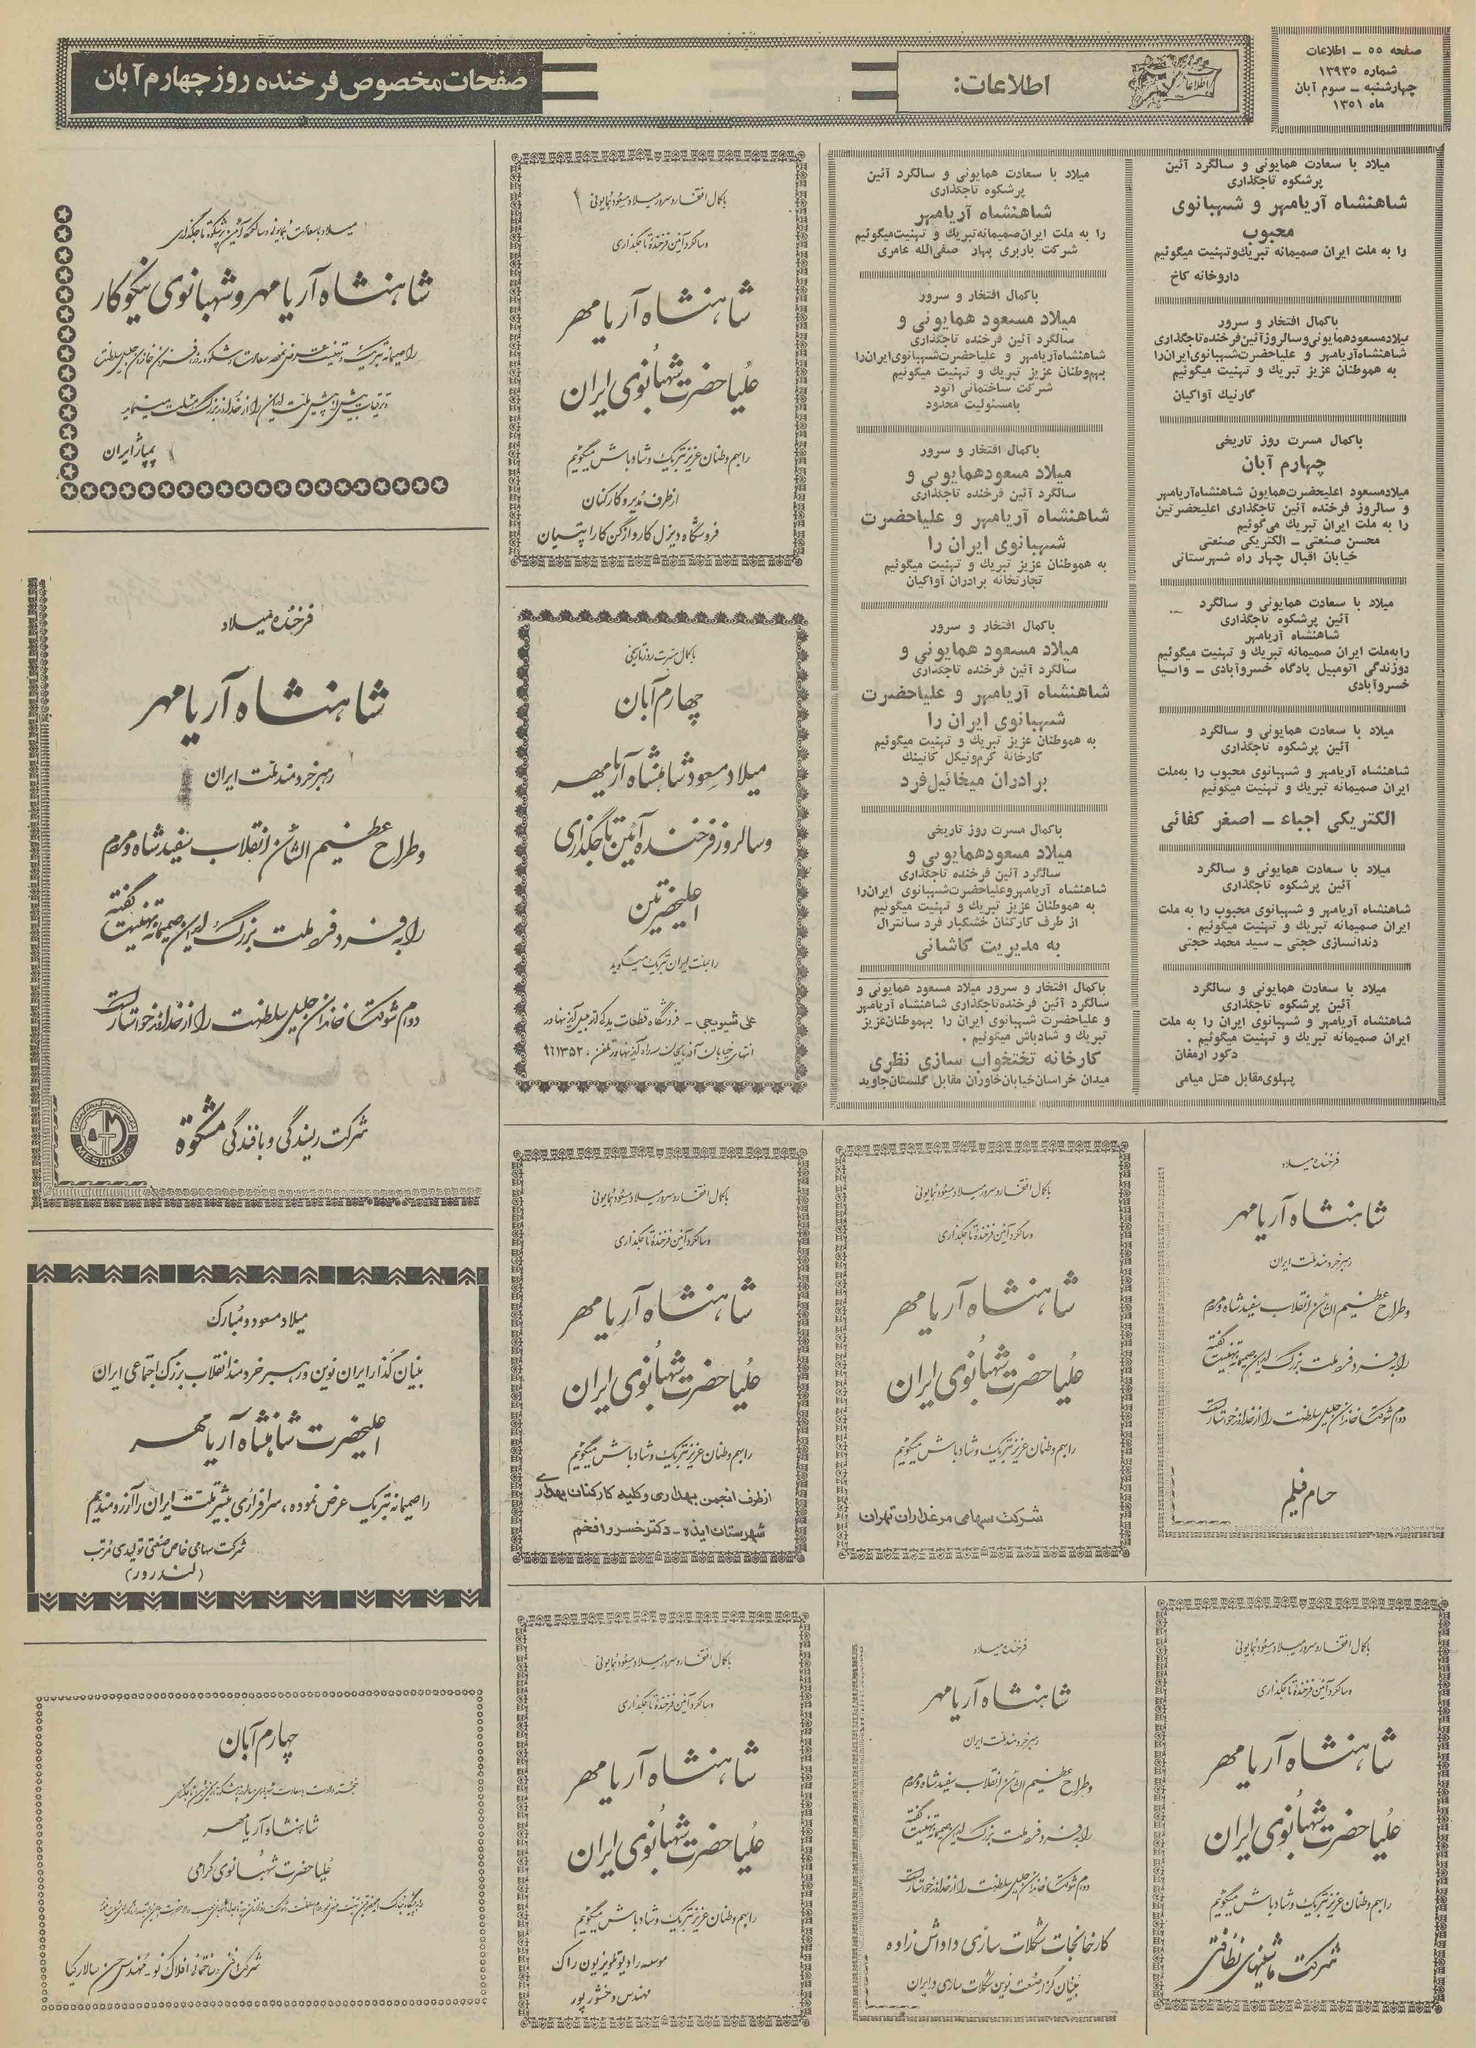 صفحه ۵۵ ــ اطلاعات
شماره ۱۳۹۳۵
چهارشنبه ــ سوم آبان
ماه ۱۳۵۱
اطلاعات:
صفحات مخصوص فرخنده روز چهارم آبان
میلاد با سعادت همایونی و سالگرد آئین
پرشکوه تاجگذاری
شاهنشاه آریامهر و شهبانوی
محبوب
را به ملت ایران صمیمانه تبریك‌وتهنیت میگوئیم
داروخانه کاخ
باکمال افتخار و سرور
میلادمسعودهمایونی‌وسالروزآئین‌فرخنده‌تاجگذاری
شاهنشاه‌آریامهر و علیاحضرت‌شهبانوی‌ایران‌را
به هموطنان عزیز تبریك و تهنیت میگوئیم
گارنیك آواکیان
باکمال مسرت روز تاریخی
چهارم آبان
میلادمسعود اعلیحضرت‌همایون شاهنشاه‌آریامهر
و سالروز فرخنده آئین تاجگذاری اعلیحضرتین
را به ملت ایران تبریك می‌گوئیم
محسن صنعتی ــ الکتریکی صنعتی
خیابان اقبال چهار راه شهرستانی
میلاد با سعادت همایونی و سالگرد
آئین پرشکوه تاجگذاری
شاهنشاه آریامهر
رابه‌ملت ایران صمیمانه تبریك و تهنیت میگوئیم
دوزندگی اتومبیل پادگاه خسروآبادی ــ واسیا
خسروآبادی
میلاد با سعادت همایونی و سالگرد
آئین پرشکوه تاجگذاری
شاهنشاه آریامهر و شهبانوی محبوب را به‌ملت
ایران صمیمانه تبریك و تهنیت میگوئیم
الکتریکی اجباء ــ اصغر کفائی
میلاد با سعادت همایونی و سالگرد
آئین پرشکوه تاجگذاری
شاهنشاه آریامهر و شهبانوی محبوب را به ملت
ایران صمیمانه تبریك و تهنیت میگوئیم .
دندانسازی حجتی ــ سید محمد حجتی
میلاد با سعادت همایونی و سالگرد
آئین پرشکوه تاجگذاری
شاهنشاه آریامهر و شهبانوی ایران را به ملت
ایران صمیمانه تبریك و تهنیت میگوئیم .
دکور ارمغان
پهلوی‌مقابل هتل میامی
میلاد با سعادت همایونی و سالگرد آئین
پرشکوه تاجگذاری
شاهنشاه آریامهر
را به ملت ایران‌صمیمانه‌تبریك و تهنیت‌میگوئیم
شرکت باربری بهار صفی‌الله عامری
باکمال افتخار و سرور
میلاد مسعود همایونی و
سالگرد آئین فرخنده تاجگذاری
شاهنشاه‌آریامهر و علیاحضرت‌شهبانوی‌ایران‌را
بهموطنان عزیز تبریك و تهنیت میگوئیم
شرکت ساختمانی آنود
بامسئولیت محدود
باکمال افتخار و سرور
میلاد مسعودهمایونی و
سالگرد آئین فرخنده تاجگذاری
شاهنشاه آریامهر و علیاحضرت
شهبانوی ایران را
به هموطنان عزیز تبریك و تهنیت میگوئیم
تجارتخانه برادران آواکیان
باکمال افتخار و سرور
میلاد مسعود همایونی و
سالگرد آئین فرخنده تاجگذاری
شاهنشاه آریامهر و علیاحضرت
شهبانوی ایران را
به هموطنان عزیز تبریك و تهنیت میگوئیم
کارخانه کرم‌ونیکل کانینك
برادران میخائیل‌فرد
باکمال مسرت روز تاریخی
میلاد مسعودهمایونی و
سالگرد آئین فرخنده تاجگذاری
شاهنشاه آریامهروعلیاحضرت‌شهبانوی ایران‌را
به هموطنان عزیز تبریك و تهنیت میگوئیم
از طرف کارکنان خشکبار فرد سانترال
به مدیریت کاشانی
باکمال افتخار و سرور میلاد مسعود همایونی و
سالگرد آئین فرخنده‌تاجگذاری شاهنشاه آریامهر
و علیاحضرت شهبانوی ایران را بهموطنان‌عزیز
تبریك و شادباش میگوئیم .
کارخانه تختخواب سازی نظری
میدان خراسان‌خیابان‌خاوران مقابل گلستان‌جاوید
باکمال افتخار و سرور میلاد مسعود همایونی
و سالگرد آئین فرخنده تاجگذاری
شاهنشاه آریامهر
علیاحضرت شهبانوی ایران
را بهم وطنان عزیز تبریک و شادباش میگوئیم
از طرف مدیر و کارکنان
فروشگاه دیزل کار واژگن کاراپتیان
باکمال مسرت روز تاریخی
چهارم آبان
میلاد مسعود شاهنشاه آریامهر
و سالروز فرخنده آئین تاجگذاری
اعلیحضرتین
را بملت ایران تبریک میگوید
علی شیویجی - فروشگاه قطعات یدکی اتومبیل آیزنهاور
انتهای خیابان آذربایجان سه راه آیزنهاور تلفن ۹۶۱۳۵۲
میلاد با سعادت همایونی و سالگرد آئین پرشکوه تاجگذاری
شاهنشاه آریامهر و شهبانوی نیکوکار
ترقیات بیش از پیش ملت ایران را از خداوند بزرگ مسئلت مینماید
پمپاژ ایران
فرخنده میلاد
شاهنشاه آریامهر
رهبر خردمند ملت ایران
و طراح عظیم الشأن انقلاب سفید شاه و مردم
را به فرد فرد ملت بزرگ ایران صمیمانه تهنیت گفته
دوام شوکت خاندان جلیل سلطنت را از خداوند خواستار است
شرکت ریسندگی و بافندگی مشکوة
MESHKAT
میلاد مسعود و مبارک
بنیان گذار ایران نوین و رهبر خردمند انقلاب بزرگ اجتماعی ایران
اعلیحضرت شاهنشاه آریامهر
را صمیمانه تبریک عرض نموده، سرافرازی بیشتر ملت ایران را آرزومندیم
شرکت سهامی خاص صنعتی تولیدی مرتب
(لندرور)
چهارم آبان
شاهنشاه آریامهر
علیاحضرت شهبانوی گرامی
باکمال افتخار و سرور میلاد مسعود همایونی
و سالگرد آئین فرخنده تاجگذاری
شاهنشاه آریامهر
علیاحضرت شهبانوی ایران
را بهم وطنان عزیز تبریک و شادباش میگوئیم
از طرف انجمن بهداری و کلیه کارکنان بهداری
شهرستان ایذه ــ دکتر خسرو افخم
باکمال افتخار و سرور میلاد مسعود همایونی
و سالگرد آئین فرخنده تاجگذاری
شاهنشاه آریامهر
علیاحضرت شهبانوی ایران
را بهم وطنان عزیز تبریک و شادباش میگوئیم
شرکت سهامی مرغداران تهران
فرخنده میلاد
شاهنشاه آریامهر
رهبر خردمند ملت ایران
و طراح عظیم الشأن انقلاب سفید شاه و مردم
را به فرد فرد ملت بزرگ ایران صمیمانه تهنیت گفته
دوام شوکت خاندان جلیل سلطنت را از خداوند خواستار است
حسام فیلم
باکمال افتخار و سرور میلاد مسعود همایونی
و سالگرد آئین فرخنده تاجگذاری
شاهنشاه آریامهر
علیاحضرت شهبانوی ایران
را بهم وطنان عزیز تبریک و شادباش میگوئیم
موسسه رادیو تلویزیون راک
مهندس وخشور پور
فرخنده میلاد
شاهنشاه آریامهر
رهبر خردمند ملت ایران
و طراح عظیم الشأن انقلاب سفید شاه و مردم
را به فرد فرد ملت بزرگ ایران صمیمانه تهنیت گفته
دوام شوکت خاندان جلیل سلطنت را از خداوند خواستار است
کارخانجات شکلات سازی داداش زاده
بنیان گزار صنعت نوین شکلات سازی در ایران
باکمال افتخار و سرور میلاد مسعود همایونی
و سالگرد آئین فرخنده تاجگذاری
شاهنشاه آریامهر
علیاحضرت شهبانوی ایران
را بهم وطنان عزیز تبریک و شادباش میگوئیم
شرکت ماشینهای نظافتی